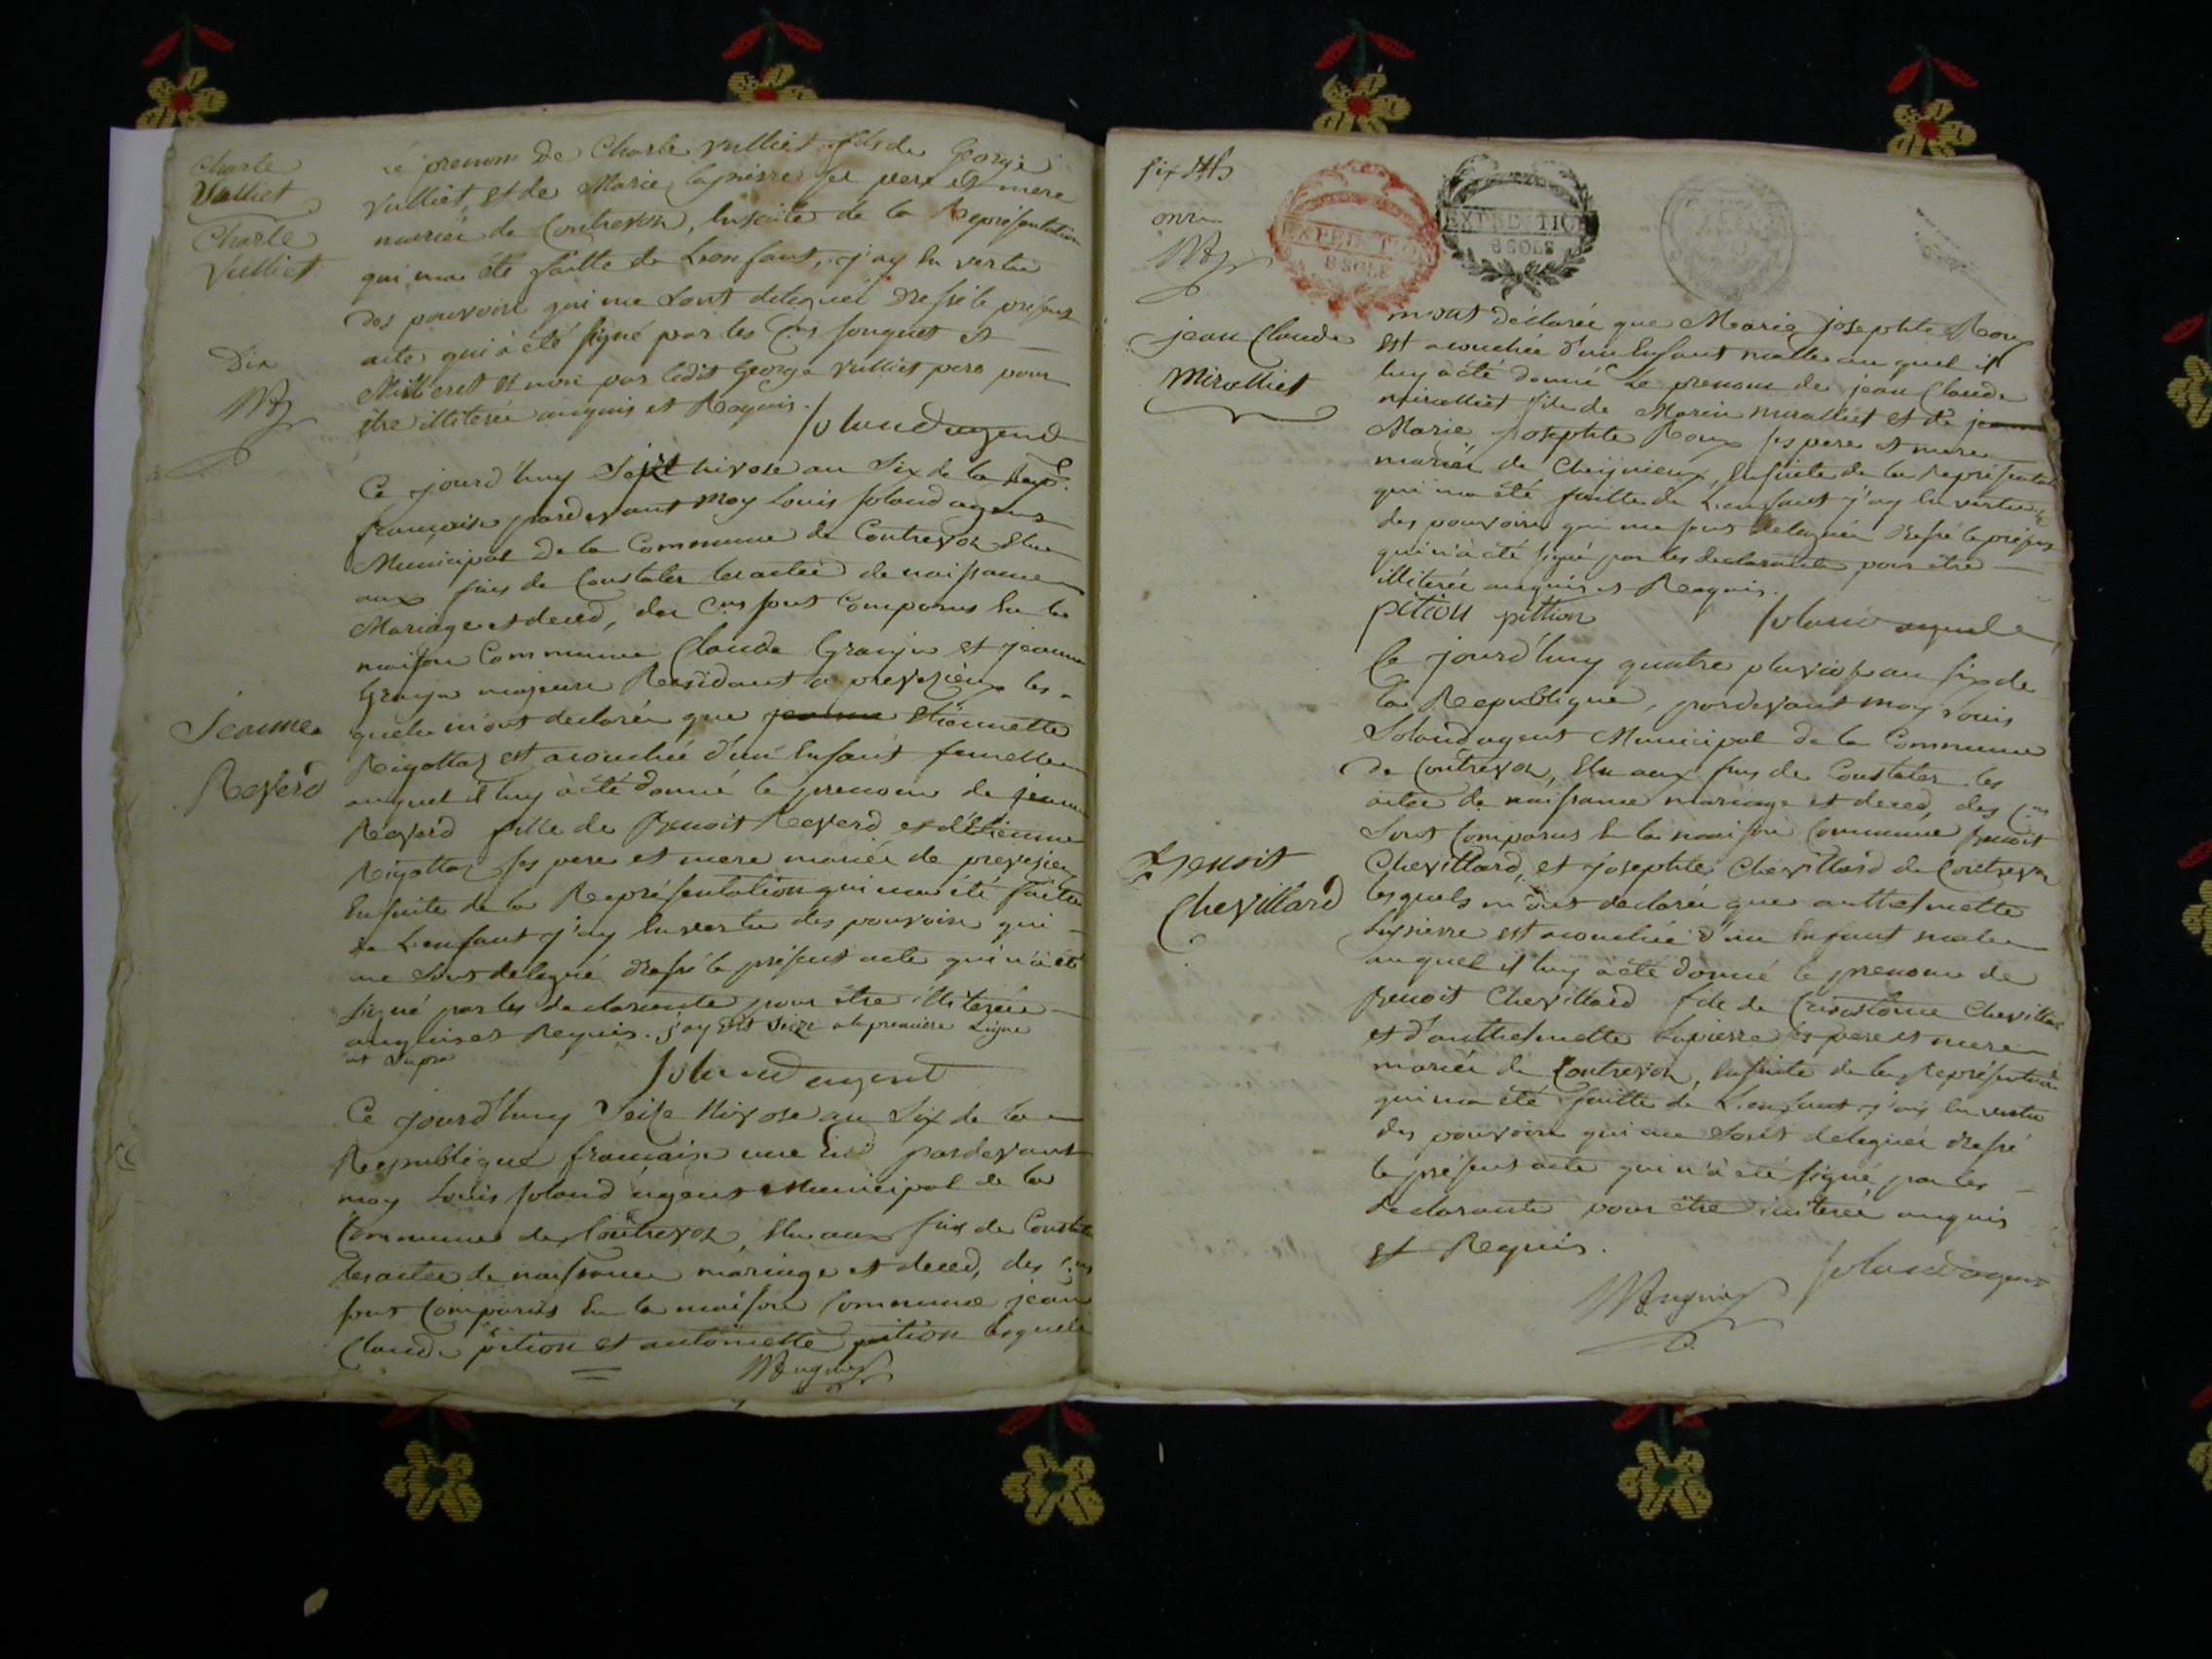 Charle
Vulliet
Charle
Vulliet
Dix
Jeanne
Reverd
le prenom de Charle Vulliet fils de George
Vulliet et de Marie lapierre ses pere et mere
mariée de Contrevoz, Ensuite de la Représentation
qui ma été faitte de L'enfant, j'ay En vertu
des pouvoirs qui me sont deleguée dressé le présent
acte qui à été signé par les C.ens fouguet et
Millieret et non par ledit George Vulliet pere pour
être illiterée enquis et Requis.
Soland agend
Ce jourd'huy Sept nivose an Six de la Rep.
françoise pardevant Moy Louis Soland agent
Municipal De la Commune de Contrevoz Elue
aux fins de Constater les actes de naissance
Mariage et deced, des C.ens sont Comparus En la
maison Commune Claude Granjan et jeanne
Granja majeure Residant a prevezieux les-
quels m'ont declarée que jeanne Etiennette
Rigottaz est acouchée d'un Enfant femelle
auquel il luy à été donné le prenom de jeanne
Reverd fille de Benoit Reverd et d'Etienne
Rigottaz ses pere et mere mariée de prevezieu
Ensuite de la Représentation qui ma été faitte
de L'enfant j'ay En vertu des pouvoirs qui
me sont delegué dressé le présent acte qui n'à été
signé par les declarants pour être illiterée
enquis et Requis. j'ay dit seize a la premiere Ligne
ut supra
Soland agend
Ce jourd'huy Seize Nivose an Six de la
Republique françoise une Et pardevant
moy Louis Soland agent Municipal de la
Commune de Contrevoz, Elue aux fins de Constater
les actes de naissance mariage et deced, des C.ens
sont Comparus En la maison Commune jean
Claude pition et antoinette pition lesquels
six
onze
jean Claude
Miralliet
Benoit
Chevillard
EXPEDITION
8 SOLS
EXPEDITION
8 SOLS
mont déclarée que Marie josephte Roux
est acouchée d'un Enfant malle au quel il
luy à été donné Le prenom de jean Claude
miralliet fils de Marin miralliet et de jeanne
Marie josephte Roux ses pere et mere
mariée de Cheignieux, Ensuite de la représentation
qui ma été faitte de L'enfant j'ay En vertu
des pouvoirs qui me sont deleguée dressé le présent
qui n'à été signé par les declarants pour être
illiterée enquis et Requis.
pition pittion Soland agend
Ce jourd'huy quatre pluviose an six de
la Republique, pardevant moy Louis
Soland agent Municipal de la Commune
de Contrevoz, Elu aux fins de Constater les
actes de naissance mariage et deced, des C.ens
Sont Comparus En la maison Commune Benoit
Chevillard, et josephte Chevillard de Contrevoz
lesquels m'ont declarée que anthelmette
Lapierre est acouchée d'un Enfant male
auquel il luy à été donné le prenom de
Benoit Chevillard fils de Crisostome Chevillard
et d'anthelmette Lapierre ses pere et mere
mariée de Contrevoz, Ensuite de la Représentation
qui ma été faitte de L'enfant j'ay En vertu
des pouvoirs qui me Sont deleguée dressé
le présent acte qui n'à été signé par les
declarants pour être illiterée enquis
et Requis.
Soland agent